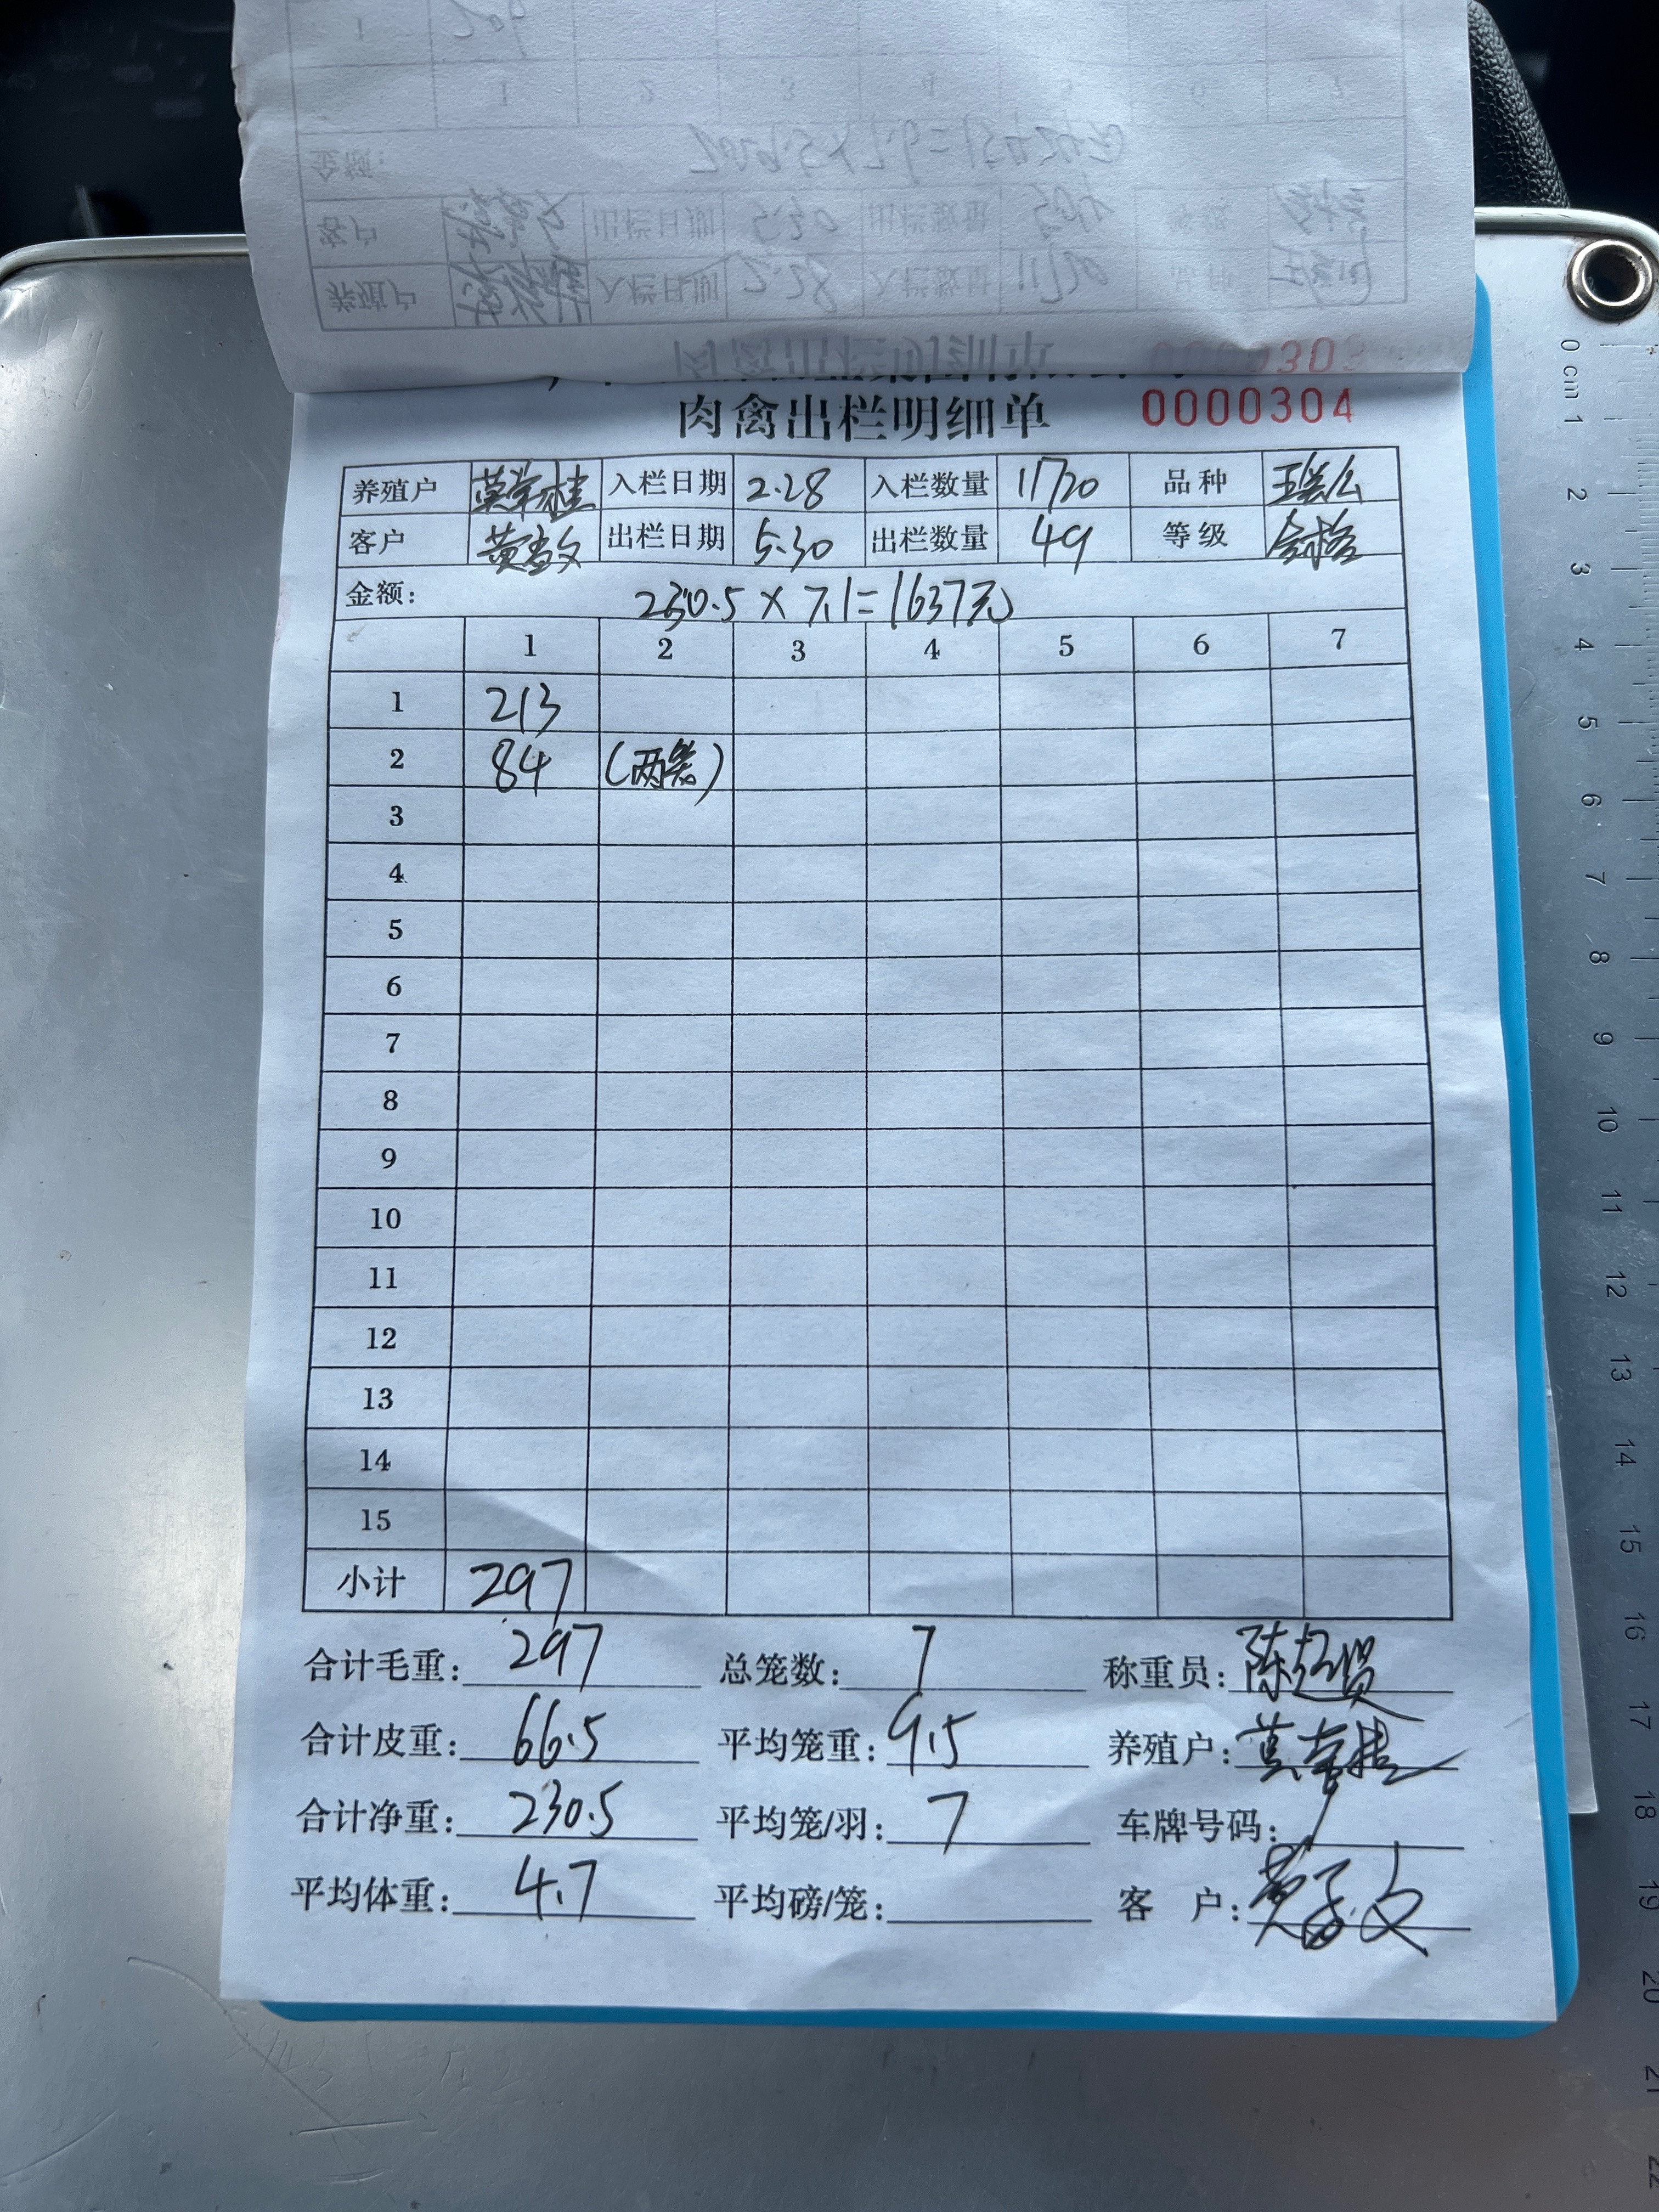 0000303
肉禽出栏明细单 0000304
养殖户 莫荣桂 入栏日期 2.28 入栏数量 11720 品种
客户 出栏日期 5.30 出栏数量 49 等级 合格
金额: 230.5 × 7.1=1637元
1 2 3 4 5 6 7
1 213
2 84 (两笼)
3
4
5
6
7
8
9
10
11
12
13
14
15
小计 297
合计毛重: 297 总笼数: 7 称重员: 陈超贤
合计皮重: 66.5 平均笼重: 9.5 养殖户: 莫荣桂
合计净重: 230.5 平均笼/羽: 7 车牌号码:
平均体重: 4.7 平均磅/笼: 客 户:
0 cm 1 2 3 4 5 6 7 8 9 10 11 12 13 14 15 16 17 18 19 20 21 22